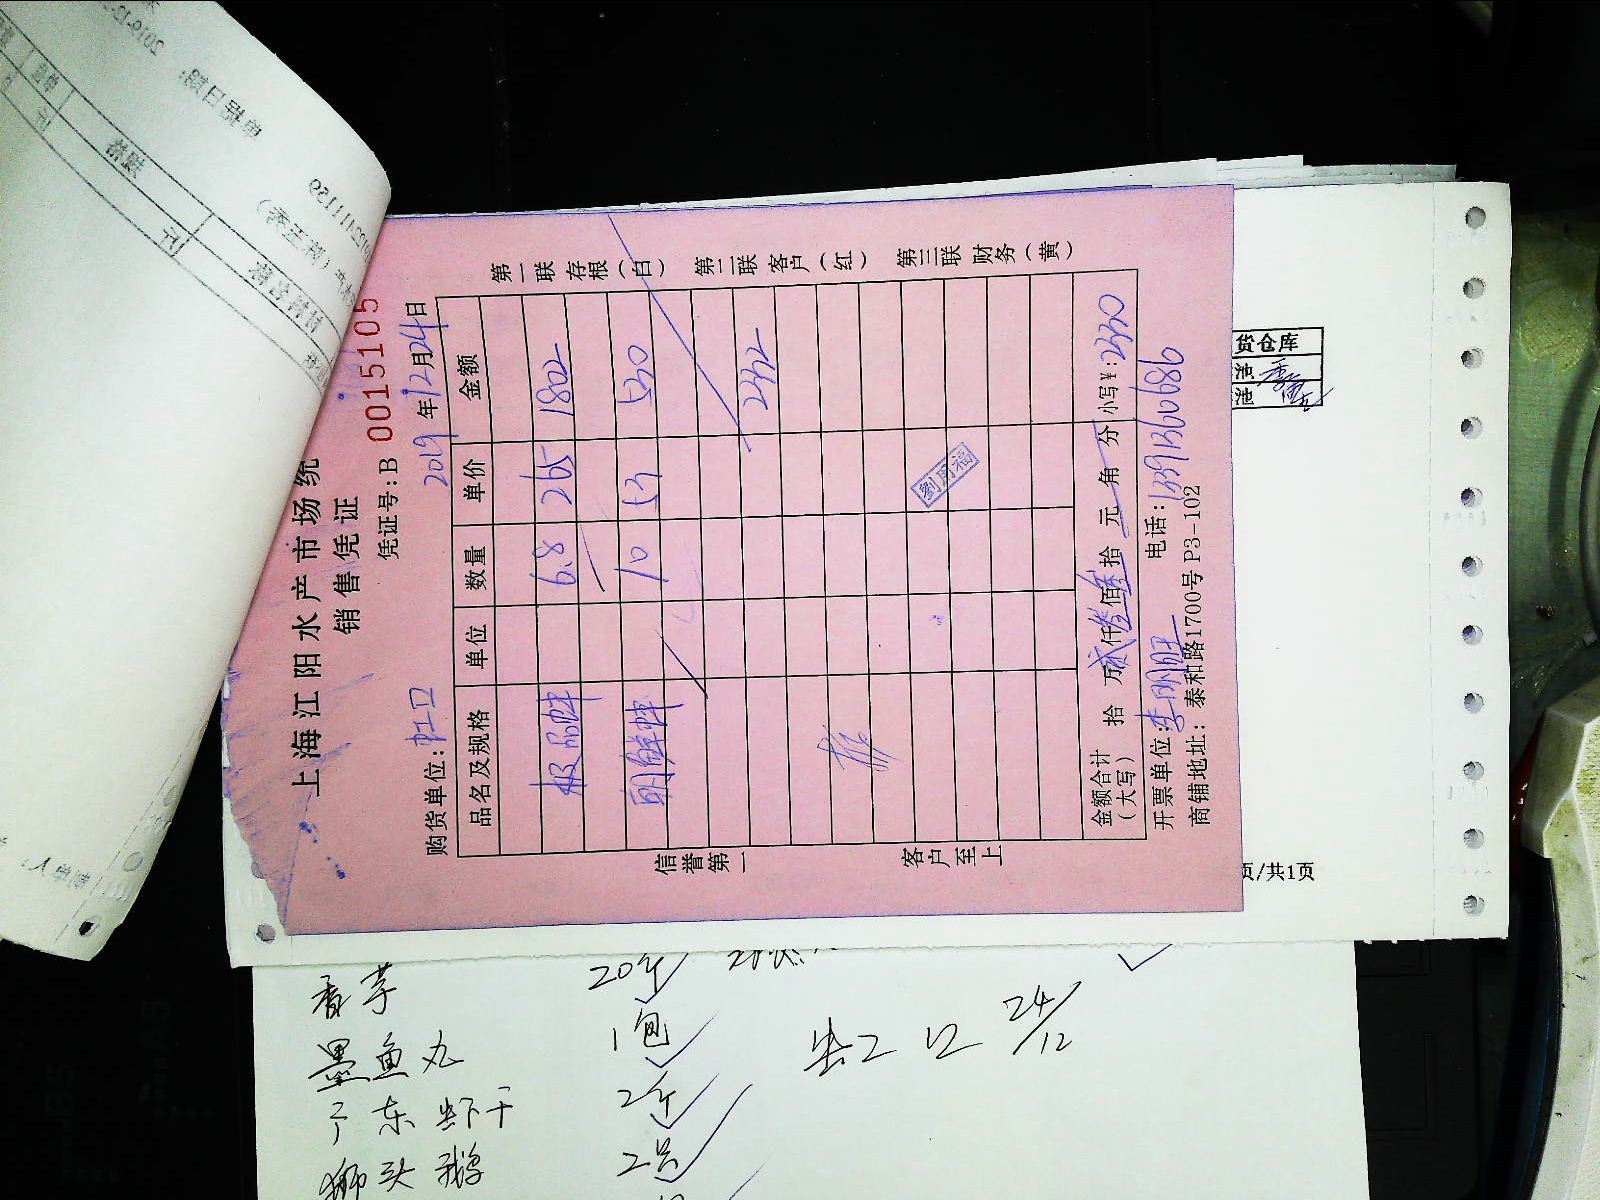 上海江阳水产市场统
销售凭证
凭证号:B 0015105
购货单位:虹口 2019年12月24日
品名及规格 单位 数量 单价 金额
极品蚌 6.8 265 1802
朝鲜蚌 10 53 530
2332
劉用福
金额合计(大写) 拾 万贰仟叁佰叁拾 元 角 分 小写¥:2330
开票单位:李明旺 电话:13391360686
商铺地址:泰和路1700号P3-102
第一联 存根(白) 第二联 客户(红) 第三联 财务(黄)
信誉第一 客户至上
货仓库
页/共1页
单据日期:
制单人:
香芋 20斤
墨鱼丸 1包
广东虾干 2斤
狮头鹅 2只
虹口 24/12